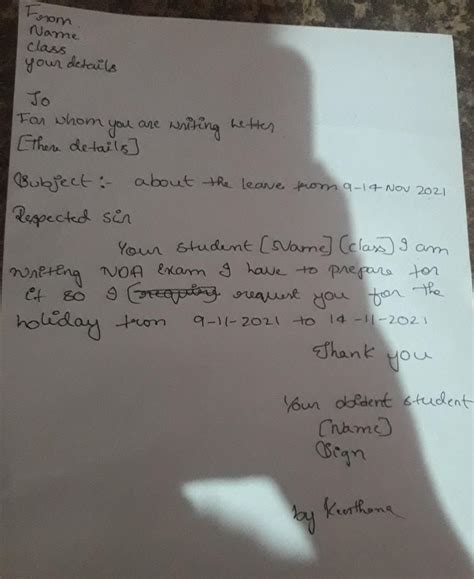 From
Name
class
your details
To
For whom you are writing letter
[There details]
Subject :- about the leave from 9-14 Nov 2021
Respected sir
Your student [Name] [class] I am
writing NDA exam I have to prepare for
it so I request you for the
holiday from 9-11-2021 to 14-11-2021
Thank you
Your obident student
[name]
Sign
by Keerthana